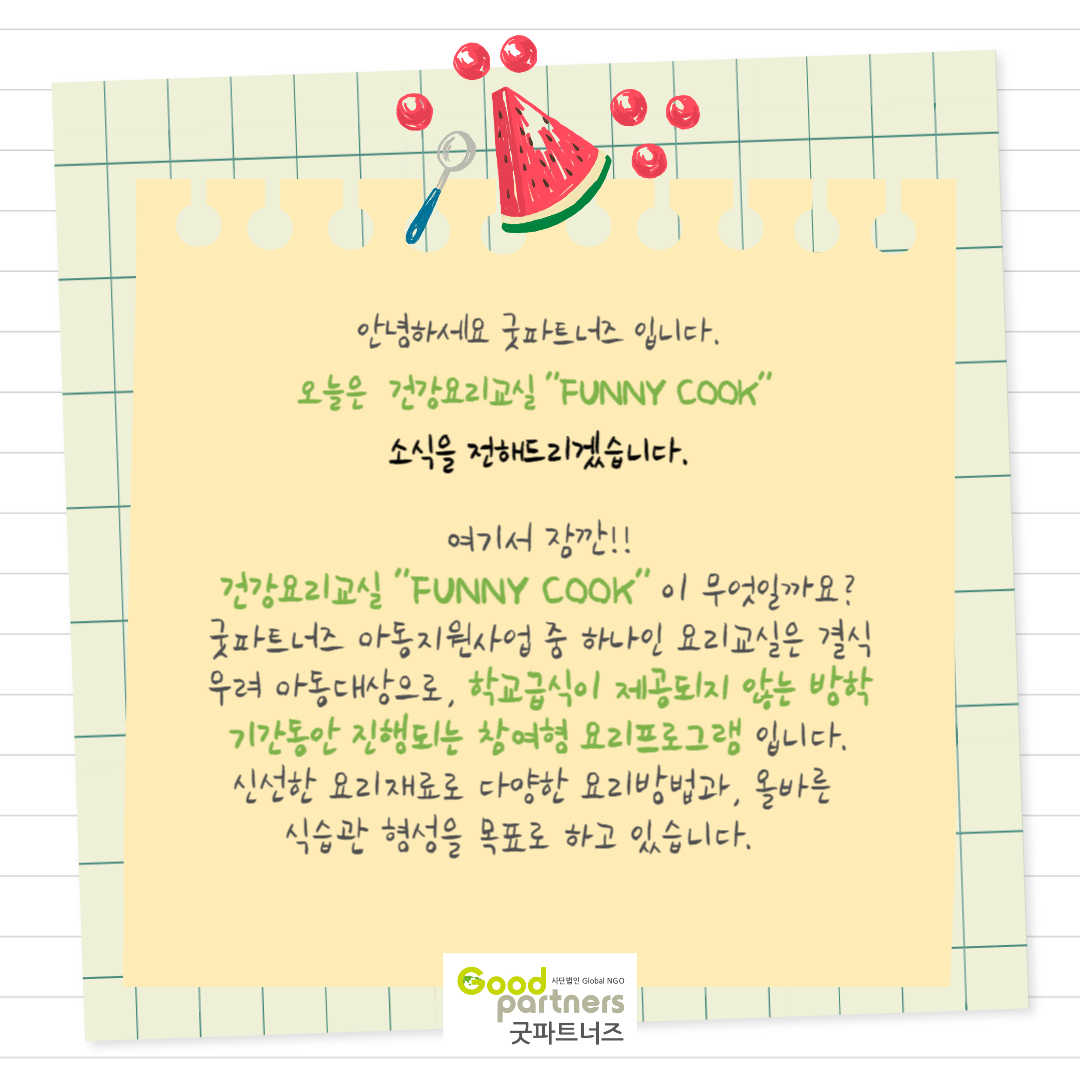 안녕하세요 굿파트너즈 입니다.
오늘은 건강요리교실 "FUNNY COOK"
소식을 전해드리겠습니다.
여기서 잠깐!!
건강요리교실 "FUNNY COOK" 이 무엇일까요?
굿파트너즈 아동지원사업 중 하나인 요리교실은 결식
우려 아동대상으로, 학교급식이 제공되지 않는 방학
기간동안 진행되는 참여형 요리프로그램 입니다.
신선한 요리재료로 다양한 요리방법과, 올바른
식습관 형성을 목표로 하고 있습니다.
Good 사단법인 Global NGO
partners
굿파트너즈